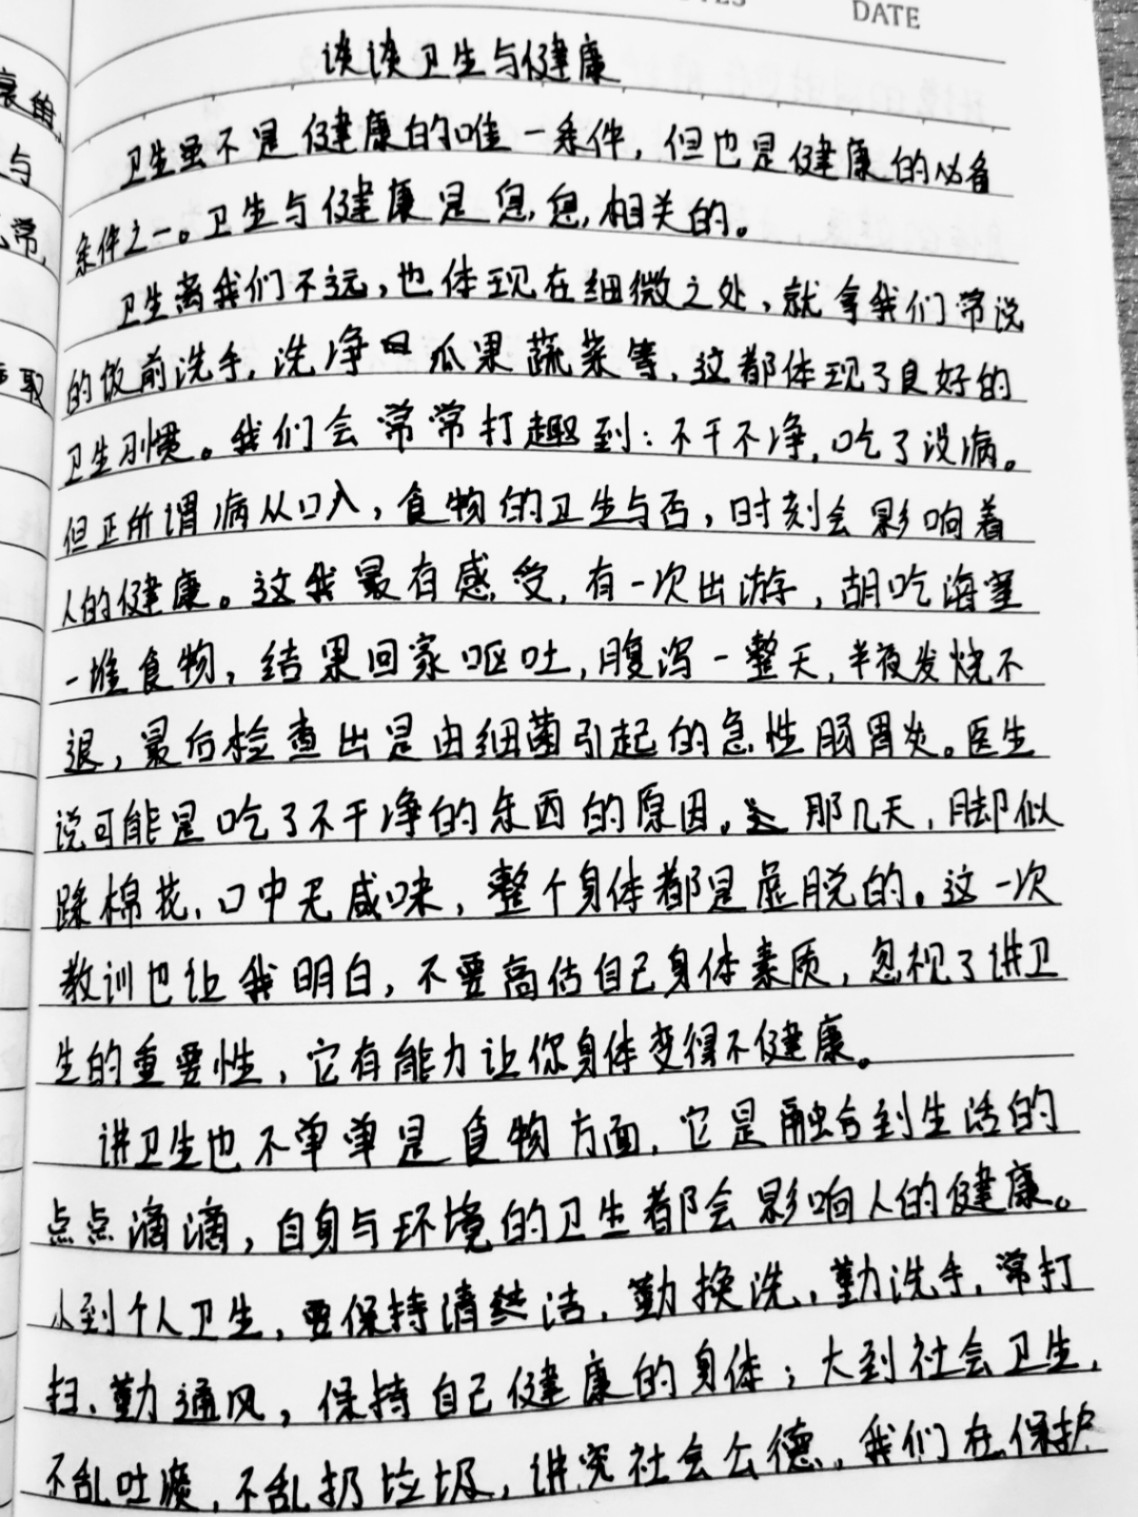 DATE
谈谈卫生与健康
卫生虽不是健康的唯一条件，但也是健康的必备
条件之一。卫生与健康是息息相关的。
卫生离我们不远，也体现在细微之处，就拿我们常说
的饭前洗手，洗净瓜果蔬菜等，这都体现了良好的
卫生习惯。我们会常常打趣到：不干不净，吃了没病。
但正所谓病从口入，食物的卫生与否，时刻会影响着
人的健康。这我最有感受，有一次出游，胡吃海塞
一堆食物，结果回家呕吐，腹泻一整天，半夜发烧不
退，最后检查出是由细菌引起的急性肠胃炎。医生
说可能是吃了不干净的东西的原因。那几天，脚似
踩棉花，口中无咸味，整个身体都是虚脱的。这一次
教训也让我明白，不要高估自己身体素质，忽视了讲卫
生的重要性，它有能力让你身体变得不健康。
讲卫生也不单单是食物方面，它是融合到生活的
点点滴滴，自身与环境的卫生都会影响人的健康。
小到个人卫生，要保持清洁，勤换洗，勤洗手，常打
扫、勤通风，保持自己健康的身体；大到社会卫生，
不乱吐痰，不乱扔垃圾，讲究社会公德，我们在保护
的
与
常
取